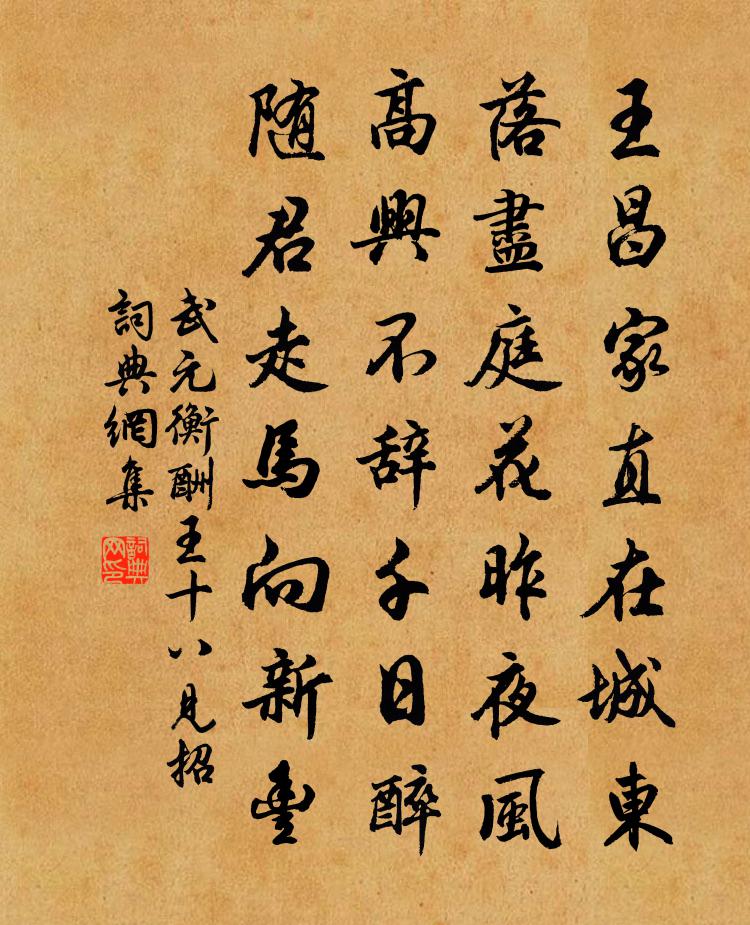 王昌家直在城東
落盡庭花昨夜風
高興不辞千日醉
随君走馬向新豊
武元衡酬王十八見招
詞典網集
詞典網印